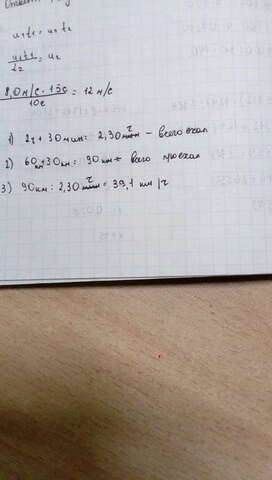 u₁t₁ = u₂ t₂
u₁t₁ / t₂ = u₂
8,0 м/с · 15с / 10с = 12 м/с
1) 2ч + 30 мин = 2,30 ч – всего ехал
2) 60км+30км = 90км всего проехал
3) 90км : 2,30 ч = 39,1 км/ч